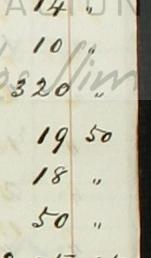 14 "
10 "
320 "
19 50
18 "
50 "